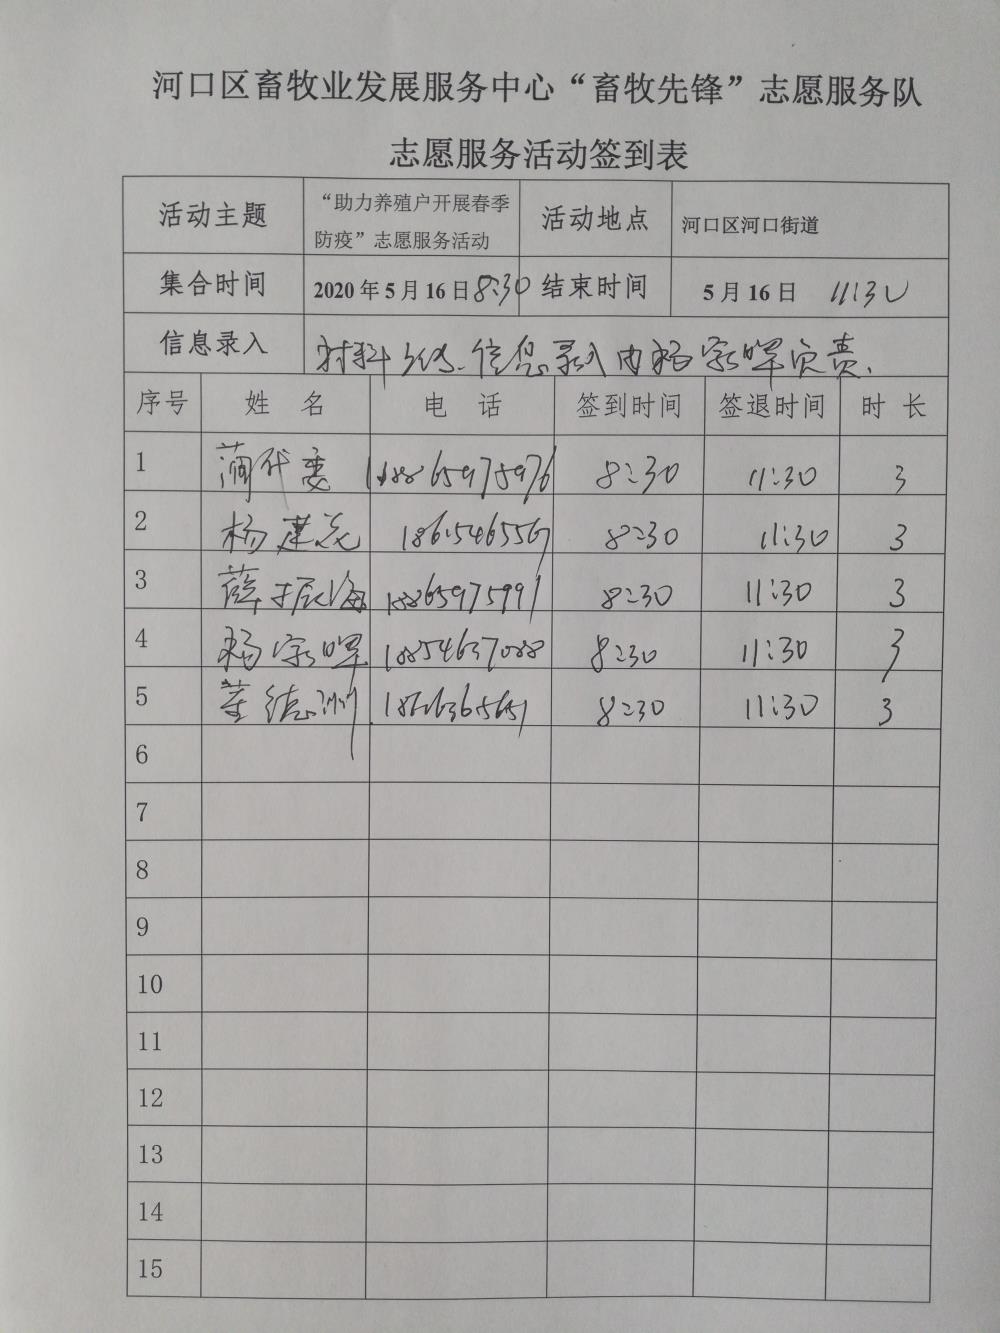 河口区畜牧业发展服务中心“畜牧先锋”志愿服务队
志愿服务活动签到表
活动主题 “助力养殖户开展春季防疫”志愿服务活动 活动地点 河口区河口街道
集合时间 2020年5月16日 8:30 结束时间 5月16日 11:30
信息录入 材料 信息录入由杨家晖负责.
序号 姓 名 电 话 签到时间 签退时间 时 长
1 8:30 11:30 3
2 杨建 8:30 11:30 3
3 薛振海 18865975991 8:30 11:30 3
4 杨家晖 18854637088 8:30 11:30 3
5 董德洲 8:30 11:30 3
6
7
8
9
10
11
12
13
14
15